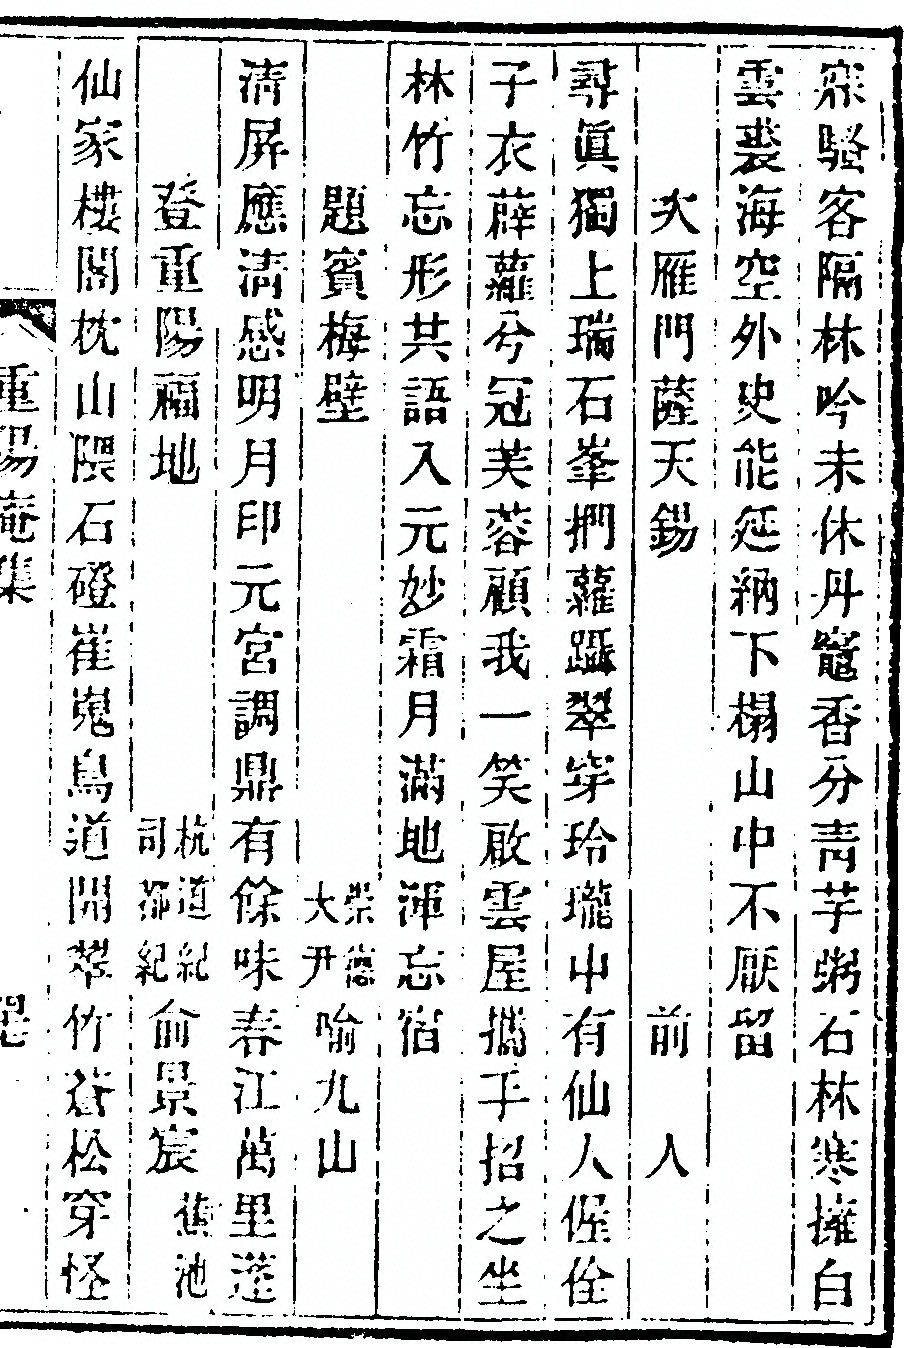 寐騷客隔林吟未休丹竈香分青芋粥石林寒擁白
雲裘海空外史能延納下榻山中不厭留
次雁門薩天錫 前人
尋眞獨上瑞石峯捫蘿躡翠穿玲瓏中有仙人偓佺
子衣薜蘿兮冠芙蓉顧我一笑啟雲屋攜手招之坐
林竹忘形共語入元妙霜月滿地渾忘宿
題賓梅壁 崇德大尹喻九山
淸屏應淸感明月印元宮調鼎有餘味春江萬里蓬
登重陽福地 杭道紀司都紀俞景宸 蕉池
仙家樓閣枕山隈石磴崔嵬鳥道開翠竹蒼松穿怪
重陽庵集